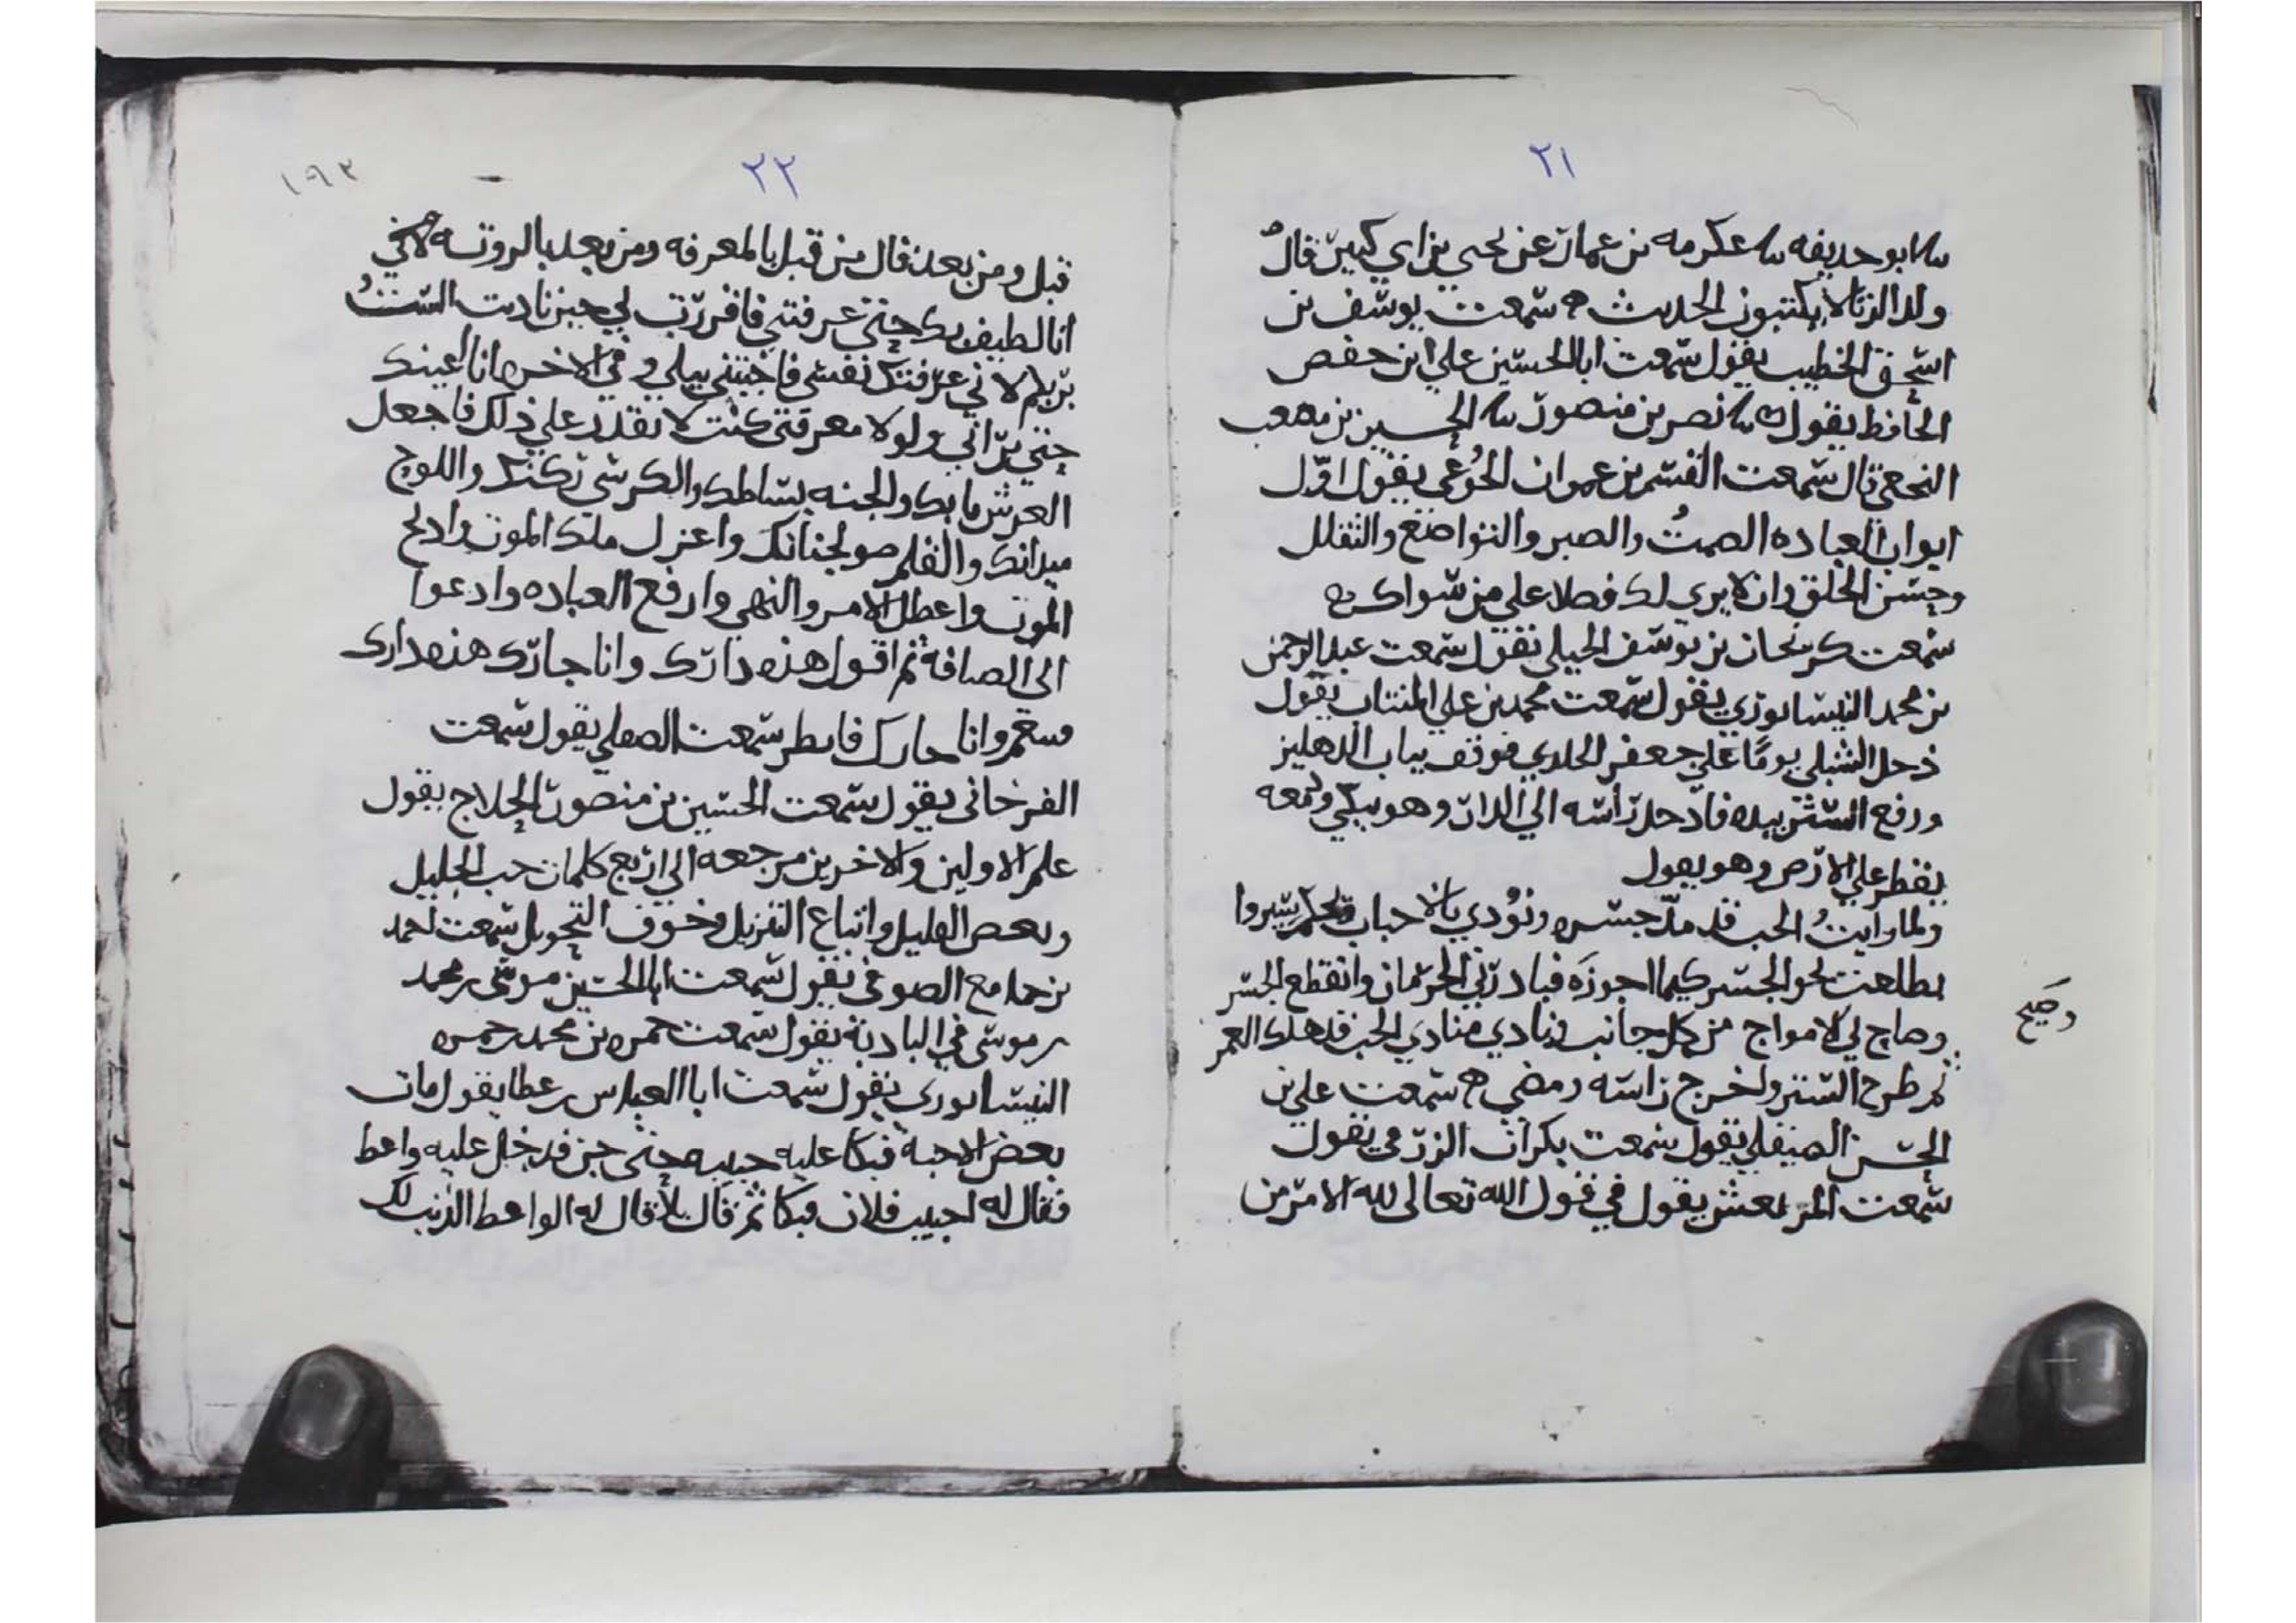 ٢١
سا ابو حديفه سا عكرمه بن عمار عن يحيى بن ابي كثير قال
ولد الزنا لا يكتبون الحديث ه سمعت يوسف بن
اسحق الخطيب يقول سمعت ابا الحسين علي ابن حفص
الحافظ يقول سا نصر بن منصور سا الحسين بن مصعب
النخعي قال سمعت القسم بن عمران الجوعي يقول اول
ابواب العباده الصمت والصبر والتواضع والتقلل
وحسن الخلق وان لا يرى لك فضلا على من سواك ه
سمعت بن يوسف الجيلي يقول سمعت عبد الرحمن
بن محمد النيسابوري يقول سمعت محمد بن علي المنتاب يقول
دخل الشبلي يوما على جعفر الخلدي فوقف بباب الدهليز
ورفع الستر بيده فادخل رأسه الى الدار وهو يبكي ودمعه
يقطر على الارض وهو يقول
ولما رايت الحب قد مد جسره ونودي بالاحباب سيروا
تطلعت نحو الجسر كيما اجوزه فبادرني الحرمان وانقطع الجسر
وهاج لي الامواج من كل جانب ونادى منادي الحب قد هلك العمر
وصح
ثم طرح الستر واخرج راسه ومضى ه سمعت علي بن
الحسن الصيقلي يقول سمعت بكران الزرمي يقول
سمعت المرتعش يقول في قول الله تعالى لله الامر من
٢٢
١٩٣
قبل ومن بعد قال من قبل بالمعرفه ومن بعد بالرويه لاني
انا لطيف بك حتى عرفتني فاقررت لي حين ناديت الست
بربكم لاني عرفتك نفسي فاجبتني ببلى وفي الاخره انا اعينك
حتى تراني ولولا معرفتي كنت لا تقدر على ذلك فاجعل
العرش بابك والجنه بساطك والكرسي ركنك واللوح
ميدانك والقلم صولجانك واعزل ملك الموت واذبح
الموت واعطل الامر والنهي وارفع العباده وادعوا
الى الصيافه ثم اقول هذه دارك وانا جارك هذه دارى
وانا جارك فابطر سمعت الصقلي يقول سمعت
الفرخاني يقول سمعت الحسين بن منصور الحلاج يقول
علم الاولين والاخرين مرجعه الى اربع كلمات حب الجليل
وبغض القليل واتباع التنزيل وخوف التحويل سمعت احمد
بن جامع الصوفي يقول سمعت ابا الحسين موسى بن محمد
بن موسى في الباديه يقول سمعت حمزه بن محمد بن حمزه
النيسابورى يقول سمعت ابا العباس بن عطا يقول مات
بعض الاحبة فبكا عليه حبيبه حتى حزن فدخل عليه واعظ
فقال له احبيب فلان فبكا ثم قال بلا قال له الواعظ الذنب لك